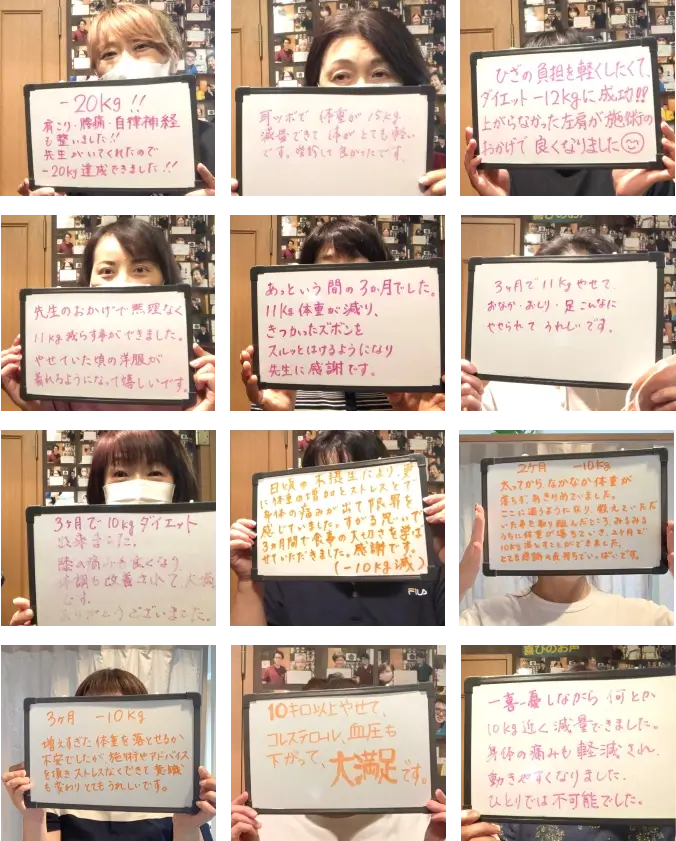 -20Kg!!
肩こり・腰痛・自律神経
も整いました!!
先生がいてくれたので
-20kg達成できました!!
耳ツボで 体重が15kg
減量できて 体が とても軽い
です。受診して良かったです。
ひざの負担を軽くしたくて、
ダイエット-12kgに成功!!
上がらなかった左肩が施術の
おかげで 良くなりました
先生のおかげで無理なく
11kg減らす事ができました。
やせていた頃の洋服が
着れるようになって嬉しいです。
あっという間の3か月でした。
11Kg体重が減り、
きつかったズボンを
スルッとはけるようになり
先生に感謝です。
喜びのお声
3ヶ月で11kgやせて、
おなか・おしり・足こんなに
やせられて うれしいです。
3ヶ月で10kgダイエット
出来ました。
膝の痛みも良くなり、
体調も改善されて、大満足
です。
ありがとうございました。
日頃の不摂生により、更
に体重の増加とストレスとで
身体の痛みが出て限界を
感じていました。すがる思いで
3ヵ月間で食事の大切さを学ば
せていただきました。感謝です。
(-10kg減)
FILA
2ヶ月 -10kg
太ってから、なかなか体重が
落ちず、あきらめていました。
ここに通うようになり、教えていただ
いた事を取り組んだところ、みるみる
うちに体重が落ちていき、2ヶ月で
10kg落とすことができました。
とても感謝の気持ちでいっぱいです。
3ヶ月 -10kg
増えすぎた体重を落とせるか
不安でしたが、施術やアドバイス
を頂きストレスなくできて意識
も変わりとてもうれしいです。
10キロ以上やせて、
コレステロール、血圧も
下がって、大満足です。
喜びのお声
一喜一憂しながら 何とか
10kg近く減量できました。
身体の痛みも軽減され、
動きやすくなりました。
ひとりでは不可能でした。